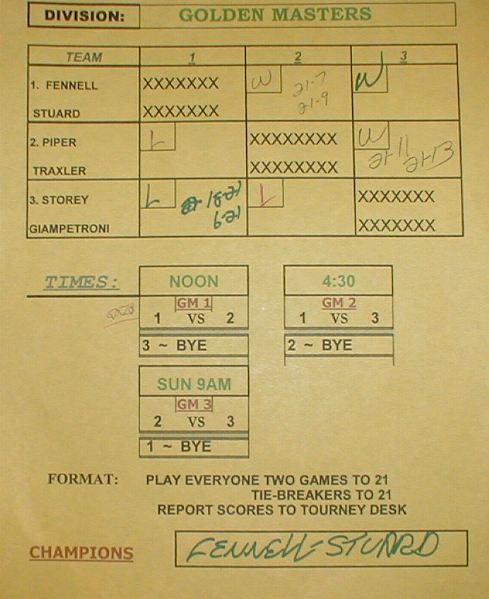 DIVISION: GOLDEN MASTERS
TEAM 1 2 3
1. FENNELL XXXXXXX W 21-7 W
STUARD XXXXXXX 21-9
2. PIPER L XXXXXXXX W
TRAXLER XXXXXXXX 21-11 21-13
3. STOREY L L XXXXXXX
GIAMPETRONI XXXXXXX
TIMES: NOON 4:30
GM 1 GM 2
1 VS 2 1 VS 3
3 ~ BYE 2 ~ BYE
SUN 9AM
GM 3
2 VS 3
1 ~ BYE
FORMAT: PLAY EVERYONE TWO GAMES TO 21
TIE-BREAKERS TO 21
REPORT SCORES TO TOURNEY DESK
CHAMPIONS FENNELL-STUARD